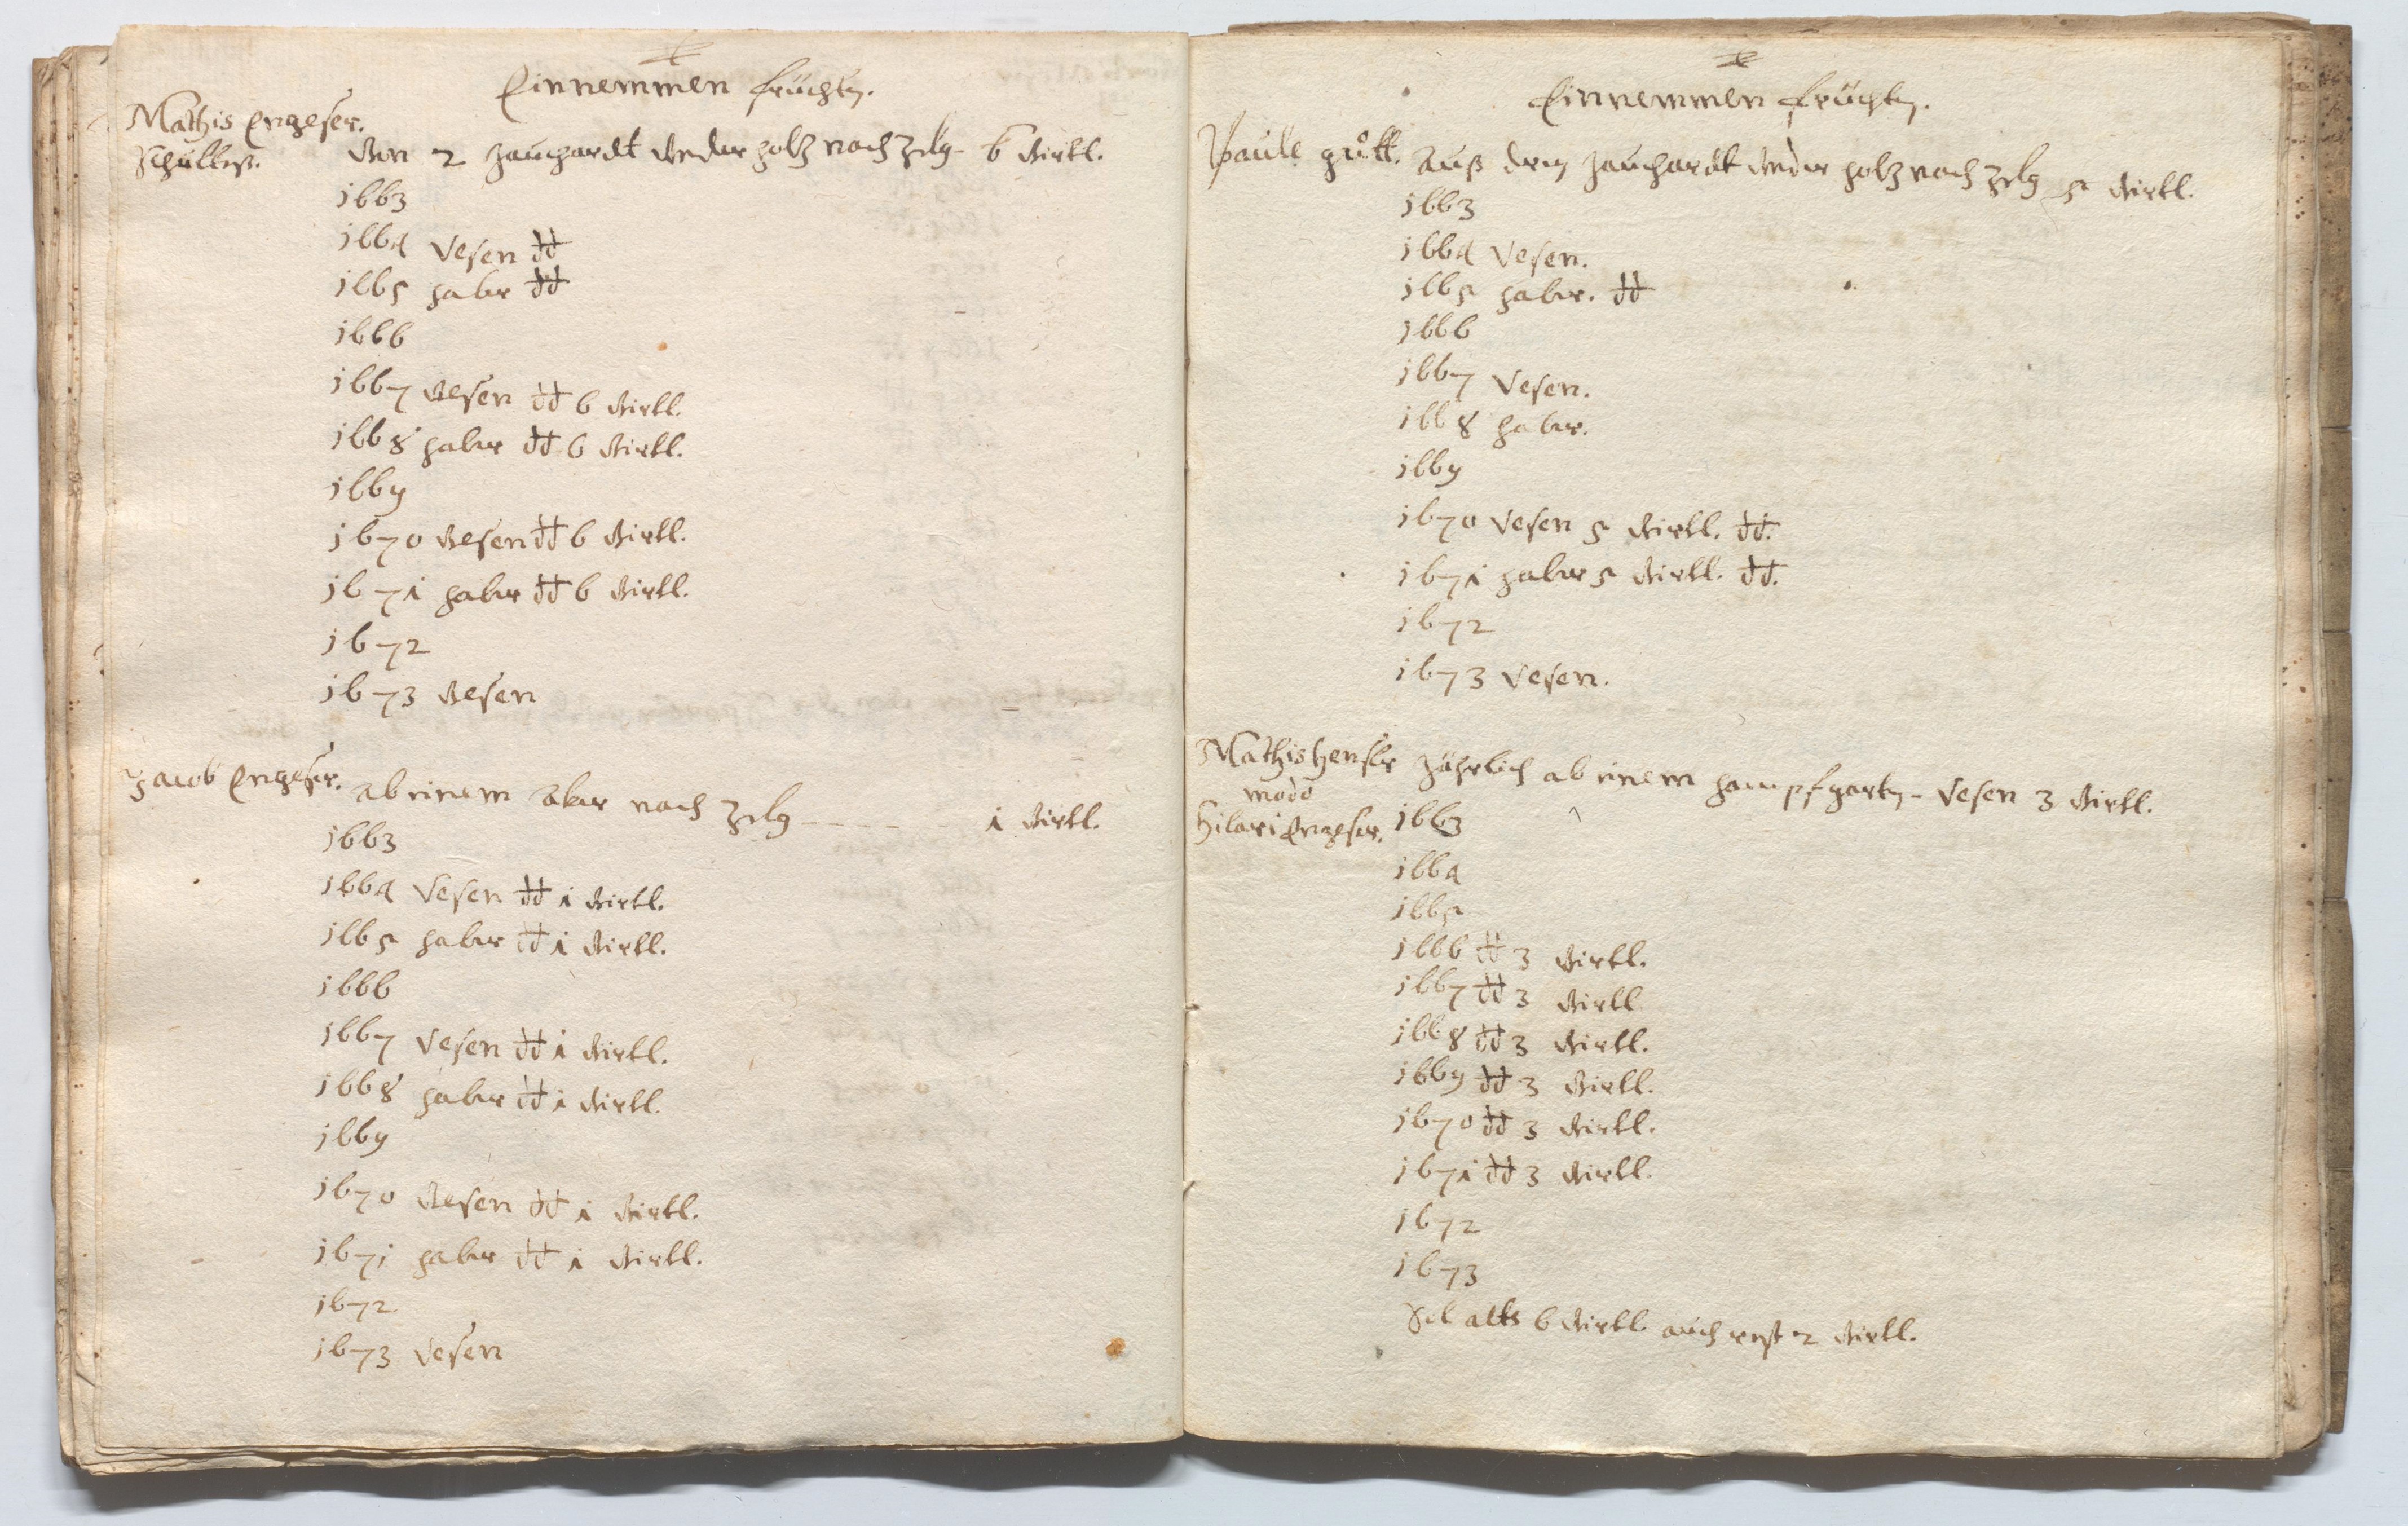 Einnemmen früchten.
Mathis Engeser.
Schulteß.
Von 2 Jauchardt under holz nach Zelg - 6 Virtl.
1663
1664 Vesen dt
1665 haber dt
1666
1667 Vesen dt 6 Virtl.
1668 haber dt 6 Virtl.
1669
1670 Vesen dt 6 Virtl.
1671 haber dt 6 Virtl.
1672
1673 Vesen
Jacob Engeser. ab einem Aker nach Zelg - - - - - 1 Virtl.
1663
1664 Vesen dt 1 Virtl.
1665 haber dt 1 Virtl.
1666
1667 Vesen dt 1 Virtl.
1668 haber dt 1 Virtl.
1669
1670 Vesen dt 1 Virtl.
1671 haber dt 1 Virtl.
1672
1673 Vesen
Einnemmen früchten.
Paule gůtt. Auß drey Jauchardt under holz nach Zelg 5 Virtl.
1663
1664 Vesen.
1665 haber. dt
1666
1667 Vesen.
1668 haber.
1669
1670 Vesen 5 Virtl. dt.
1671 haber 5 Virtl. dt.
1672
1673 Vesen.
Mathis Hensler Jährlich ab einem hampfgarten - Vesen 3 Virtl.
modo
Hilari Engeser.
1663
1664
1665
1666 dt 3 Virtl.
1667 dt 3 Virtl
1668 dt 3 Virtl.
1669 dt 3 Virtl.
1670 dt 3 Virtl.
1671 dt 3 Virtl.
1672
1673
alts 6 Virtl. auch rest 2 Virtl.